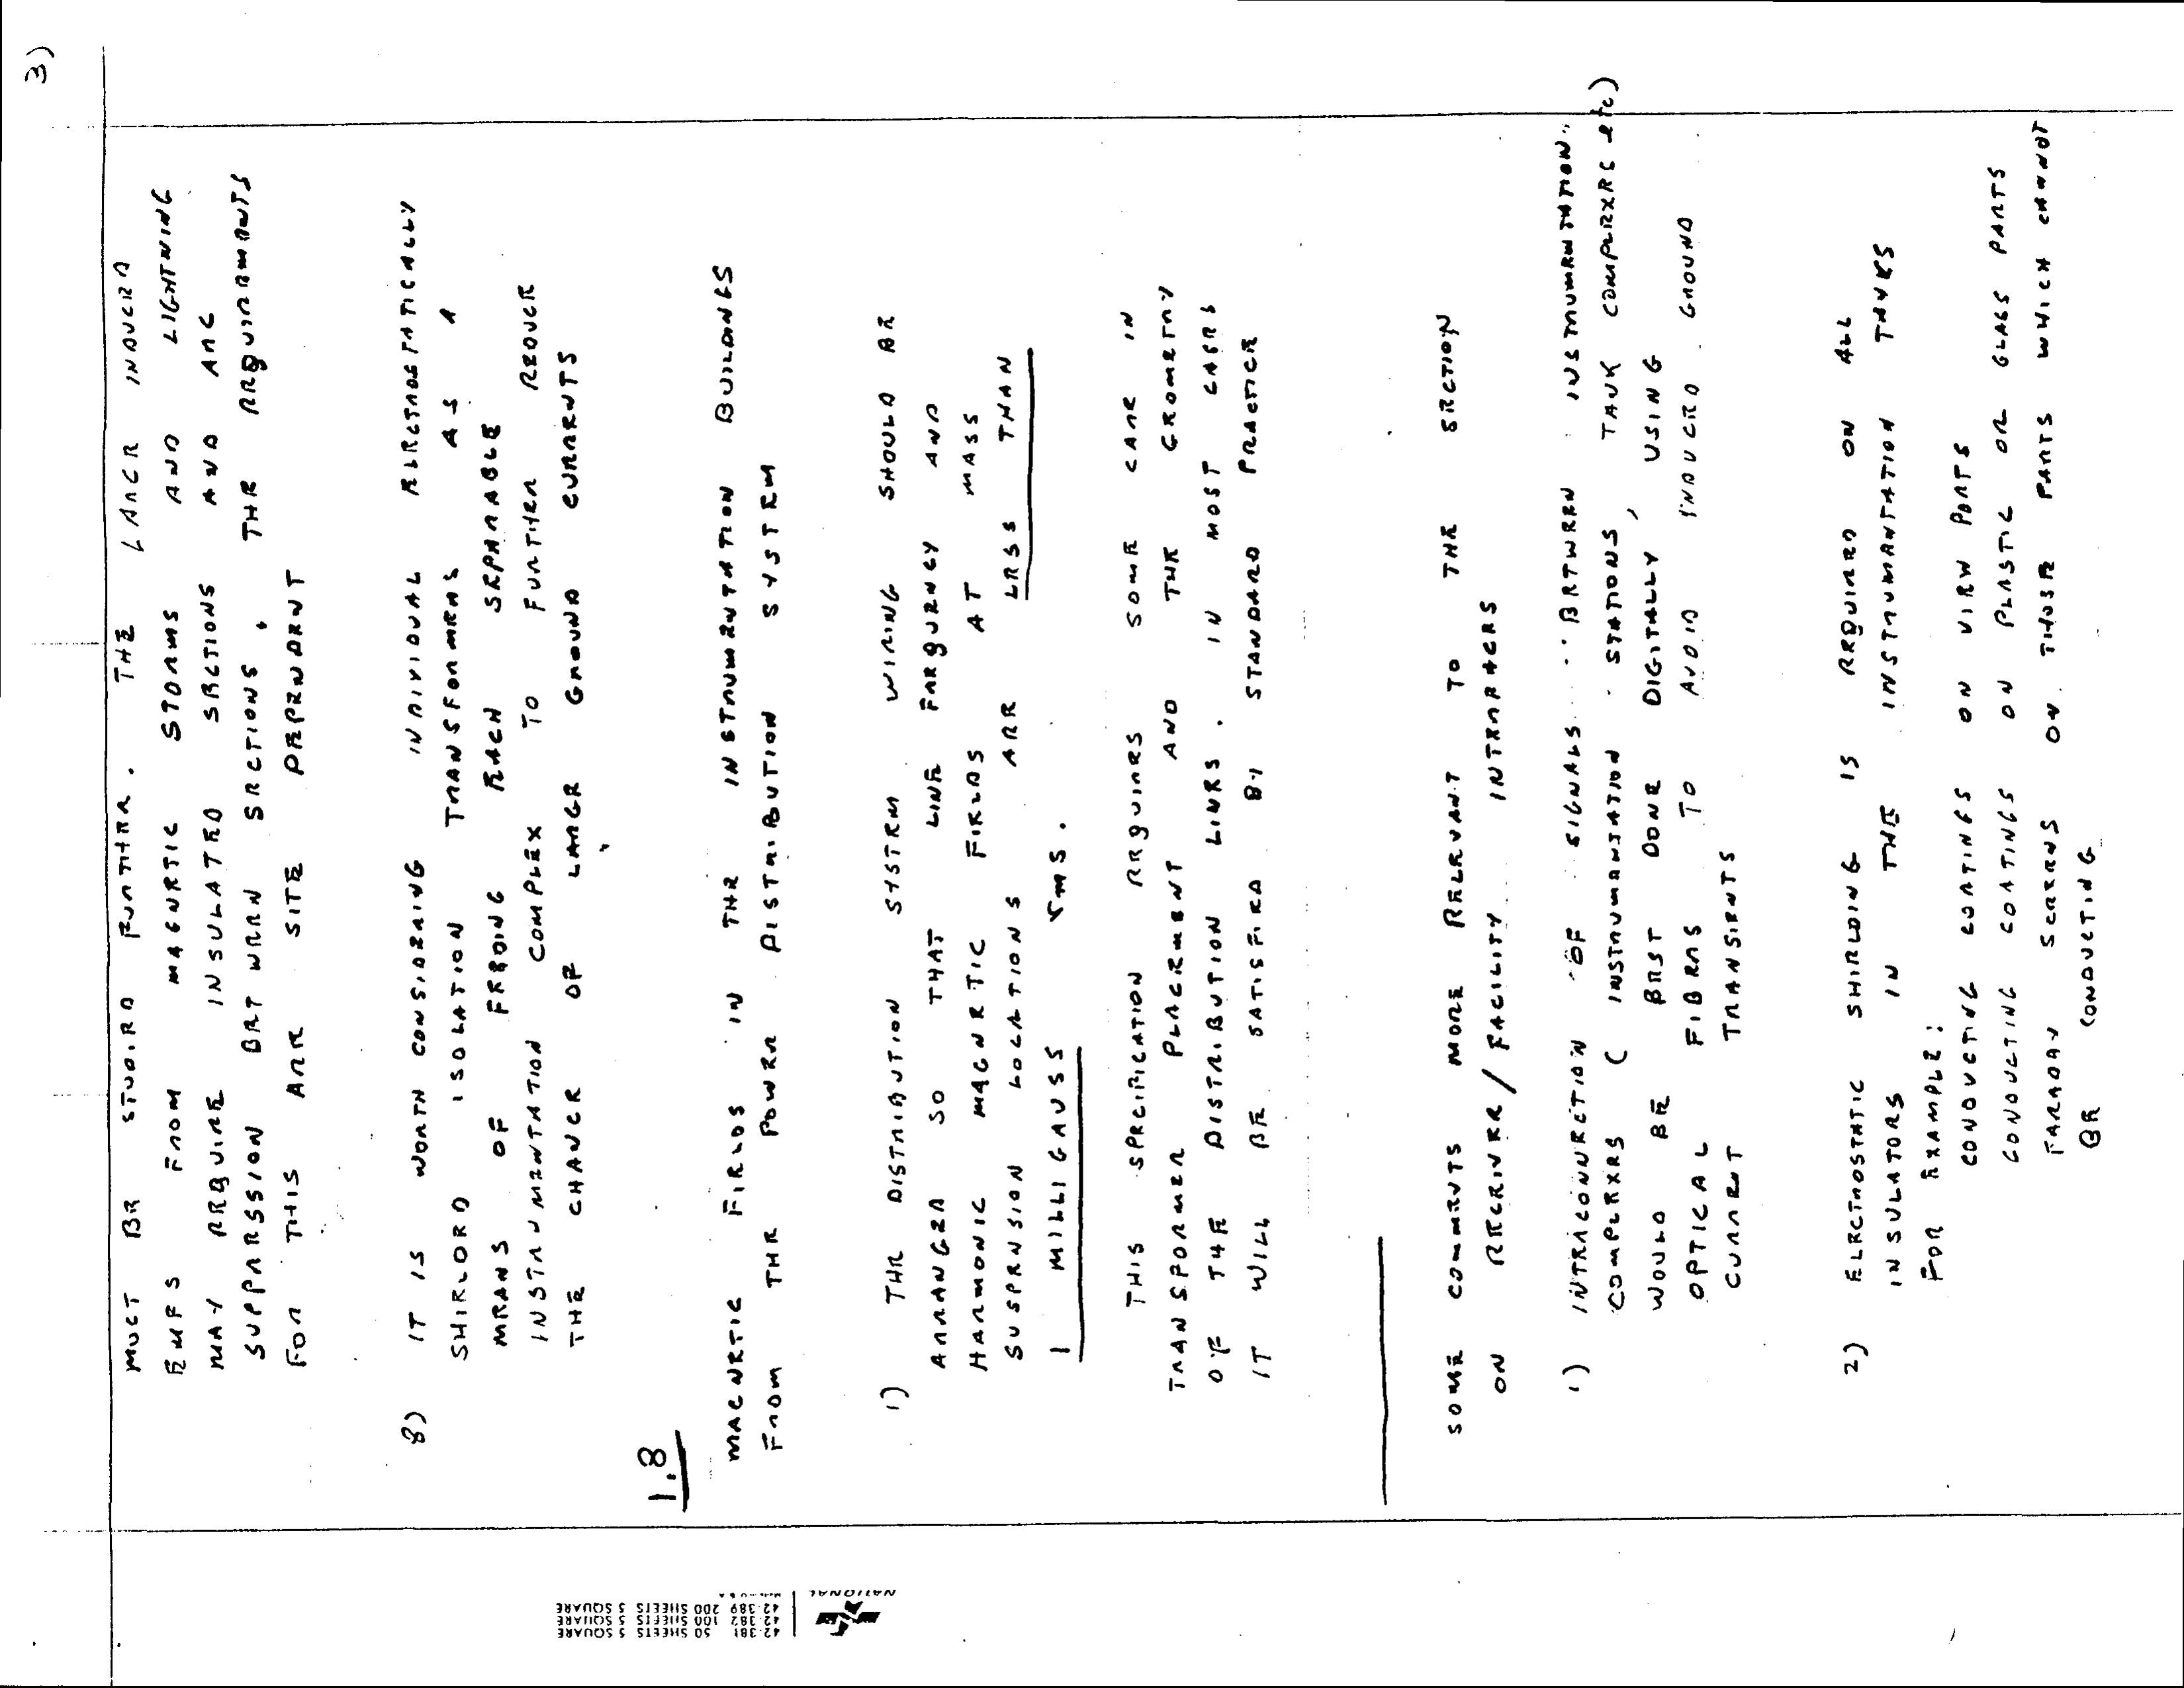 3)
MUST BE STUDIED FURTHER. THE LARGE INDUCED
EMFS FROM MAGNETIC STORMS AND LIGHTNING
MAY REQUIRE INSULATED SECTIONS AND ARC
SUPPRESSION BETWEEN SECTIONS. THE REQUIREMENTS
FOR THIS ARE SITE DEPENDENT
8) IT IS WORTH CONSIDERING INDIVIDUAL ELECTROSTATICALLY
SHIELDED ISOLATION TRANSFORMERS AS A
MEANS OF FEEDING EACH SEPARABLE
INSTRUMENTATION COMPLEX TO FURTHER REDUCE
THE CHANCE OF LARGE GROUND CURRENTS
1.8
MAGNETIC FIELDS IN THE INSTRUMENTATION BUILDINGS
FROM THE POWER DISTRIBUTION SYSTEM
1) THE DISTRIBUTION SYSTEM WIRING SHOULD BE
ARRANGED SO THAT LINE FREQUENCY AND
HARMONIC MAGNETIC FIELDS AT MASS
SUSPENSION LOCATIONS ARE LESS THAN
1 MILLIGAUSS rms.
THIS SPECIFICATION REQUIRES SOME CARE IN
TRANSFORMER PLACEMENT AND THE GEOMETRY
OF THE DISTRIBUTION LINES. IN MOST CASES
IT WILL BE SATISFIED BY STANDARD PRACTICE
SOME COMMENTS MORE RELEVANT TO THE SECTION
ON RECEIVER/FACILITY INTERFACES
1) INTERCONNECTION OF SIGNALS BETWEEN INSTRUMENTATION
COMPLEXES ( INSTRUMENTATION STATIONS, TANK COMPLEXES etc)
WOULD BE BEST DONE DIGITALLY, USING
OPTICAL FIBERS TO AVOID INDUCED GROUND
CURRENT TRANSIENTS
2) ELECTROSTATIC SHIELDING IS REQUIRED ON ALL
INSULATORS IN THE INSTRUMENTATION TANKS
FOR EXAMPLE:
CONDUCTING COATINGS ON VIEW PORTS
CONDUCTING COATINGS ON PLASTIC OR GLASS PARTS
FARADAY SCREENS ON THOSE PARTS WHICH CANNOT
BE CONDUCTING
42-381 50 SHEETS 5 SQUARE
42-382 100 SHEETS 5 SQUARE
42-389 200 SHEETS 5 SQUARE
NATIONAL